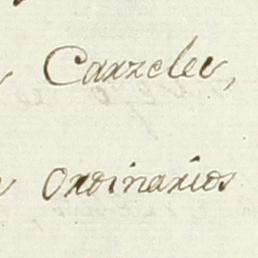 Carzeles,
Ordinarios